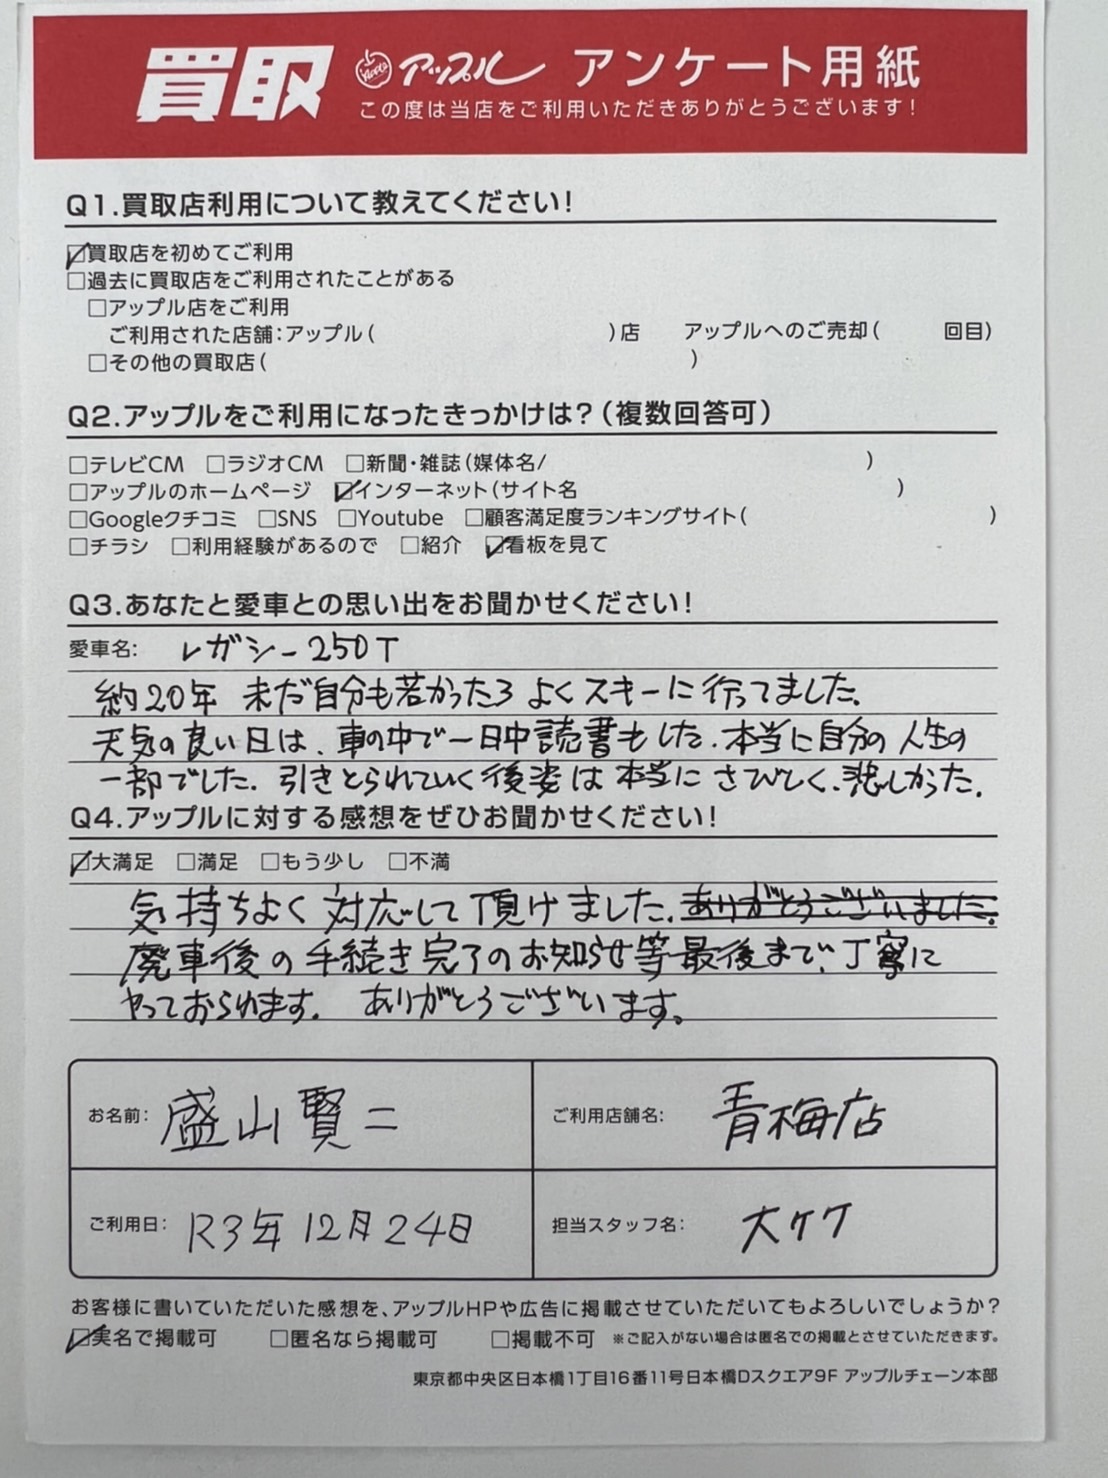 買取 Apple アップル アンケート用紙
この度は当店をご利用いただきありがとうございます!
Q1.買取店利用について教えてください!
☑買取店を初めてご利用
□過去に買取店をご利用されたことがある
□アップル店をご利用
ご利用された店舗:アップル( )店 アップルへのご売却( 回目)
□その他の買取店( )
Q2.アップルをご利用になったきっかけは?(複数回答可)
□テレビCM □ラジオCM □新聞・雑誌(媒体名/ )
□アップルのホームページ ☑インターネット(サイト名 )
□Googleクチコミ □SNS □Youtube □顧客満足度ランキングサイト( )
□チラシ □利用経験があるので □紹介 ☑看板を見て
Q3.あなたと愛車との思い出をお聞かせください!
愛車名: レガシー250T
約20年 未だ自分も若かったころ よくスキーに行ってました。
天気の良い日は、車の中で一日中読書もした。本当に自分の人生の
一部でした。引きとられていく後姿は本当にさびしく、悲しかった。
Q4.アップルに対する感想をぜひお聞かせください!
☑大満足 □満足 □もう少し □不満
気持ちよく対応して頂けました。ありがとうございました。
廃車後の手続き完了のお知らせ等最後まで、丁寧に
やっておられます。 ありがとうございます。
お名前: 盛山賢二
ご利用店舗名: 青梅店
ご利用日: R3年12月24日
担当スタッフ名: 大ケケ
お客様に書いていただいた感想を、アップルHPや広告に掲載させていただいてもよろしいでしょうか?
☑実名で掲載可 □匿名なら掲載可 □掲載不可 ※ご記入がない場合は匿名での掲載とさせていただきます。
東京都中央区日本橋1丁目16番11号日本橋Dスクエア9F アップルチェーン本部